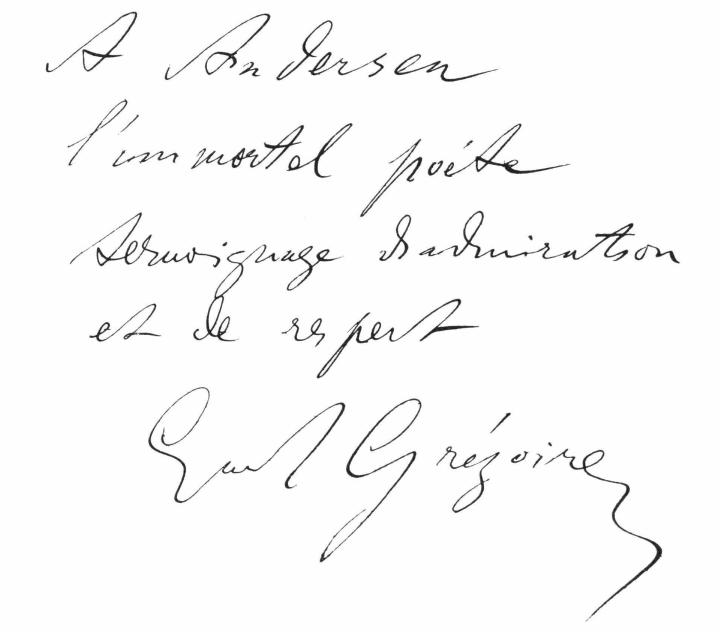 A Andersen
l'immortel poéte
temoignage d'admiration
et de respect
Grégoire